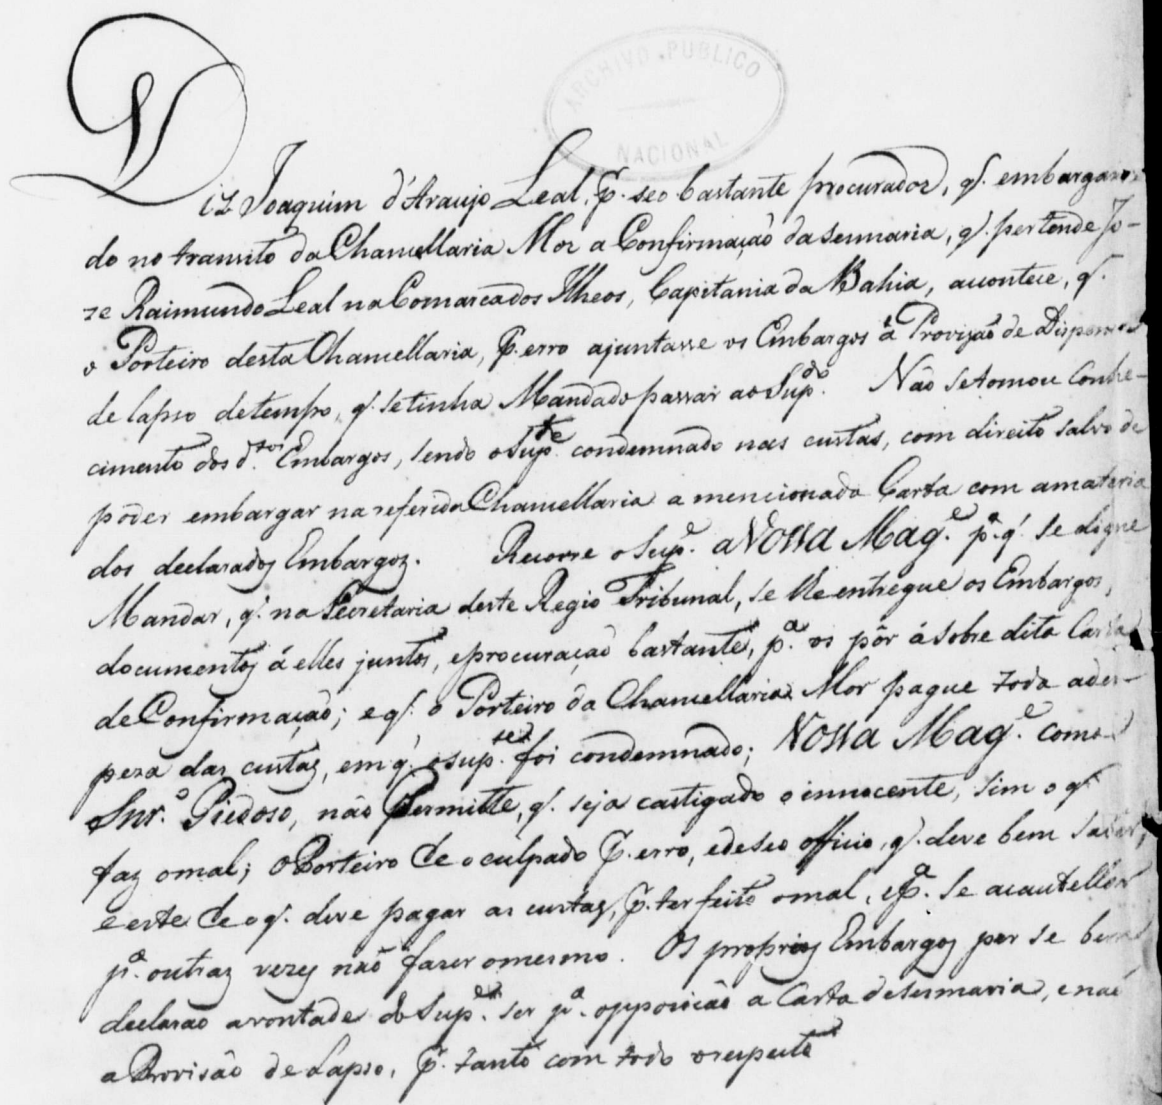 ARCHIVO PUBLICO
NACIONAL
Diz Joaquim d'Araujo Leal, p. seo bastante procurador, q. embargan-
do no transito da Chancellaria Mor a Confirmação da sesmaria, q. pertende Jo-
ze Raimundo Leal na Comarca dos Ilheos, Capitania da Bahia, acontece, q.
o Porteiro desta Chancellaria, p. erro ajuntasse os Embargos á Provizão de Dispensa
de lapso de tempo, q. se tinha Mandado passar ao Sup.do Não se tomou conhe-
cimento dos d.tos Embargos, sendo o Sup.te condemnado nas custas, com direito salvo de
poder embargar na referida Chancellaria a mencionada Carta com a materia
dos declarados Embargos. Recorre o Sup.e a Vossa Mag.e p.a q. se digne
Mandar, q. na Secretaria deste Regio Tribunal, se lhe entregue os Embargos,
documentos á elles juntos, e procuração bastante, p.a os pôr á sobre dita Carta
de Confirmação; e q. o Porteiro da Chancellaria Mor pague toda a des-
peza das custas, em q. o sup.te foi condemnado; Vossa Mag.e como
Snr.o Piedoso, não Permitte, q. seja castigado o innocente, sim o q.
faz o mal; o Porteiro he o culpado p. erro, e de seo officio, q. deve bem saber,
e este he o q. deve pagar as custas, p. ter feito o mal, e p.a se acautellar
p.a outras vezes não fazer o mesmo. Os proprios Embargos per se bem
declarão a vontade do Sup.e ser p.a opposição a Carta de Sesmaria, e não
a Provisão de Lapso, p. tanto com todo o respeito